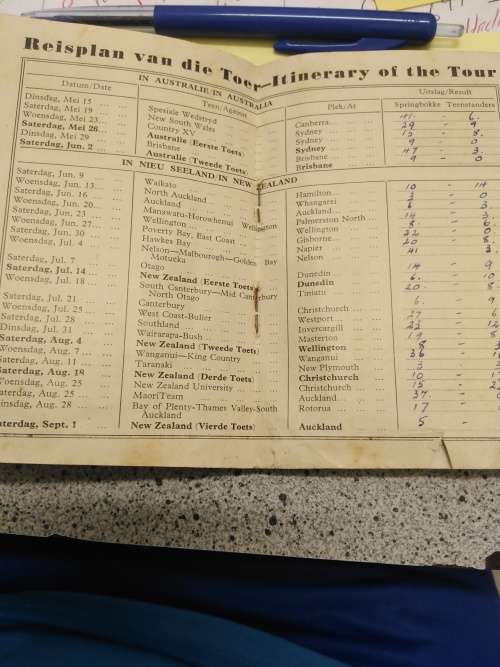 Reisplan van die Toer—Itinerary of the Tour
IN AUSTRALIE/IN AUSTRALIA
Datum/Date Teen/Against Plek/At Uitslag/Result
Springbokke Teenstanders
Dinsdag, Mei 15 Spesiale Wedstryd Canberra 41 - 6
Saterdag, Mei 19 New South Wales Sydney 29 - 9
Woensdag, Mei 23 Country XV Sydney 15 - 8
Saterdag, Mei 26 Australia (Eerste Toets) Sydney 9 - 0
Dinsdag, Mei 29 Brisbane Brisbane 47 - 3
Saterdag, Jun. 2 Australia (Tweede Toets) Brisbane 9 - 0
IN NIEU SEELAND/IN NEW ZEALAND
Saterdag, Jun. 9 Waikato Hamilton 10 - 14
Woensdag, Jun. 13 North Auckland Whangarei 3 - 0
Saterdag, Jun. 16 Auckland Auckland 6 - 3
Woensdag, Jun. 20 Manawatu-Horowhenui Palmerston North 14 - 3
Saterdag, Jun. 23 Wellington Wellington 8 - 6
Woensdag, Jun. 27 Poverty Bay, East Coast Gisborne 22 - 0
Saterdag, Jun. 30 Hawkes Bay Napier 20 - 8
Woensdag, Jul. 4 Nelson—Malbourogh—Golden Bay Motueka Nelson 41 3
Saterdag, Jul. 7 Otago Dunedin 14 - 9
Saterdag, Jul. 14 New Zealand (Eerste Toets) Dunedin 6 - 10
Woensdag, Jul. 18 South Canterbury—Mid Canterbury North Otago 20 - 8
Saterdag, Jul. 21 Canterbury Christchurch 6 - 9
Woensdag, Jul. 25 West Coast-Buller Westport 27 - 6
Saterdag, Jul. 28 Southland Invercargill 23 - 12
Dinsdag, Jul. 31 Wairarapa-Bush Masterton 19 - 8
Saterdag, Aug. 4 New Zealand (Tweede Toets) Wellington 8
Dinsdag, Aug. 7 Wanganui—King Country Wanganui 36
Saterdag, Aug. 11 Taranaki New Plymouth 3
Saterdag, Aug. 18 New Zealand (Derde Toets) Christchurch 10
Woensdag, Aug. 25 New Zealand University Christchurch 15
Saterdag, Aug. 25 MaoriTeam Auckland 37
Dinsdag, Aug. 28 Bay of Plenty-Thames Valley-South Auckland Rotorua 17 -
Saterdag, Sept. 1 New Zealand (Vierde Toets) Auckland 5 -